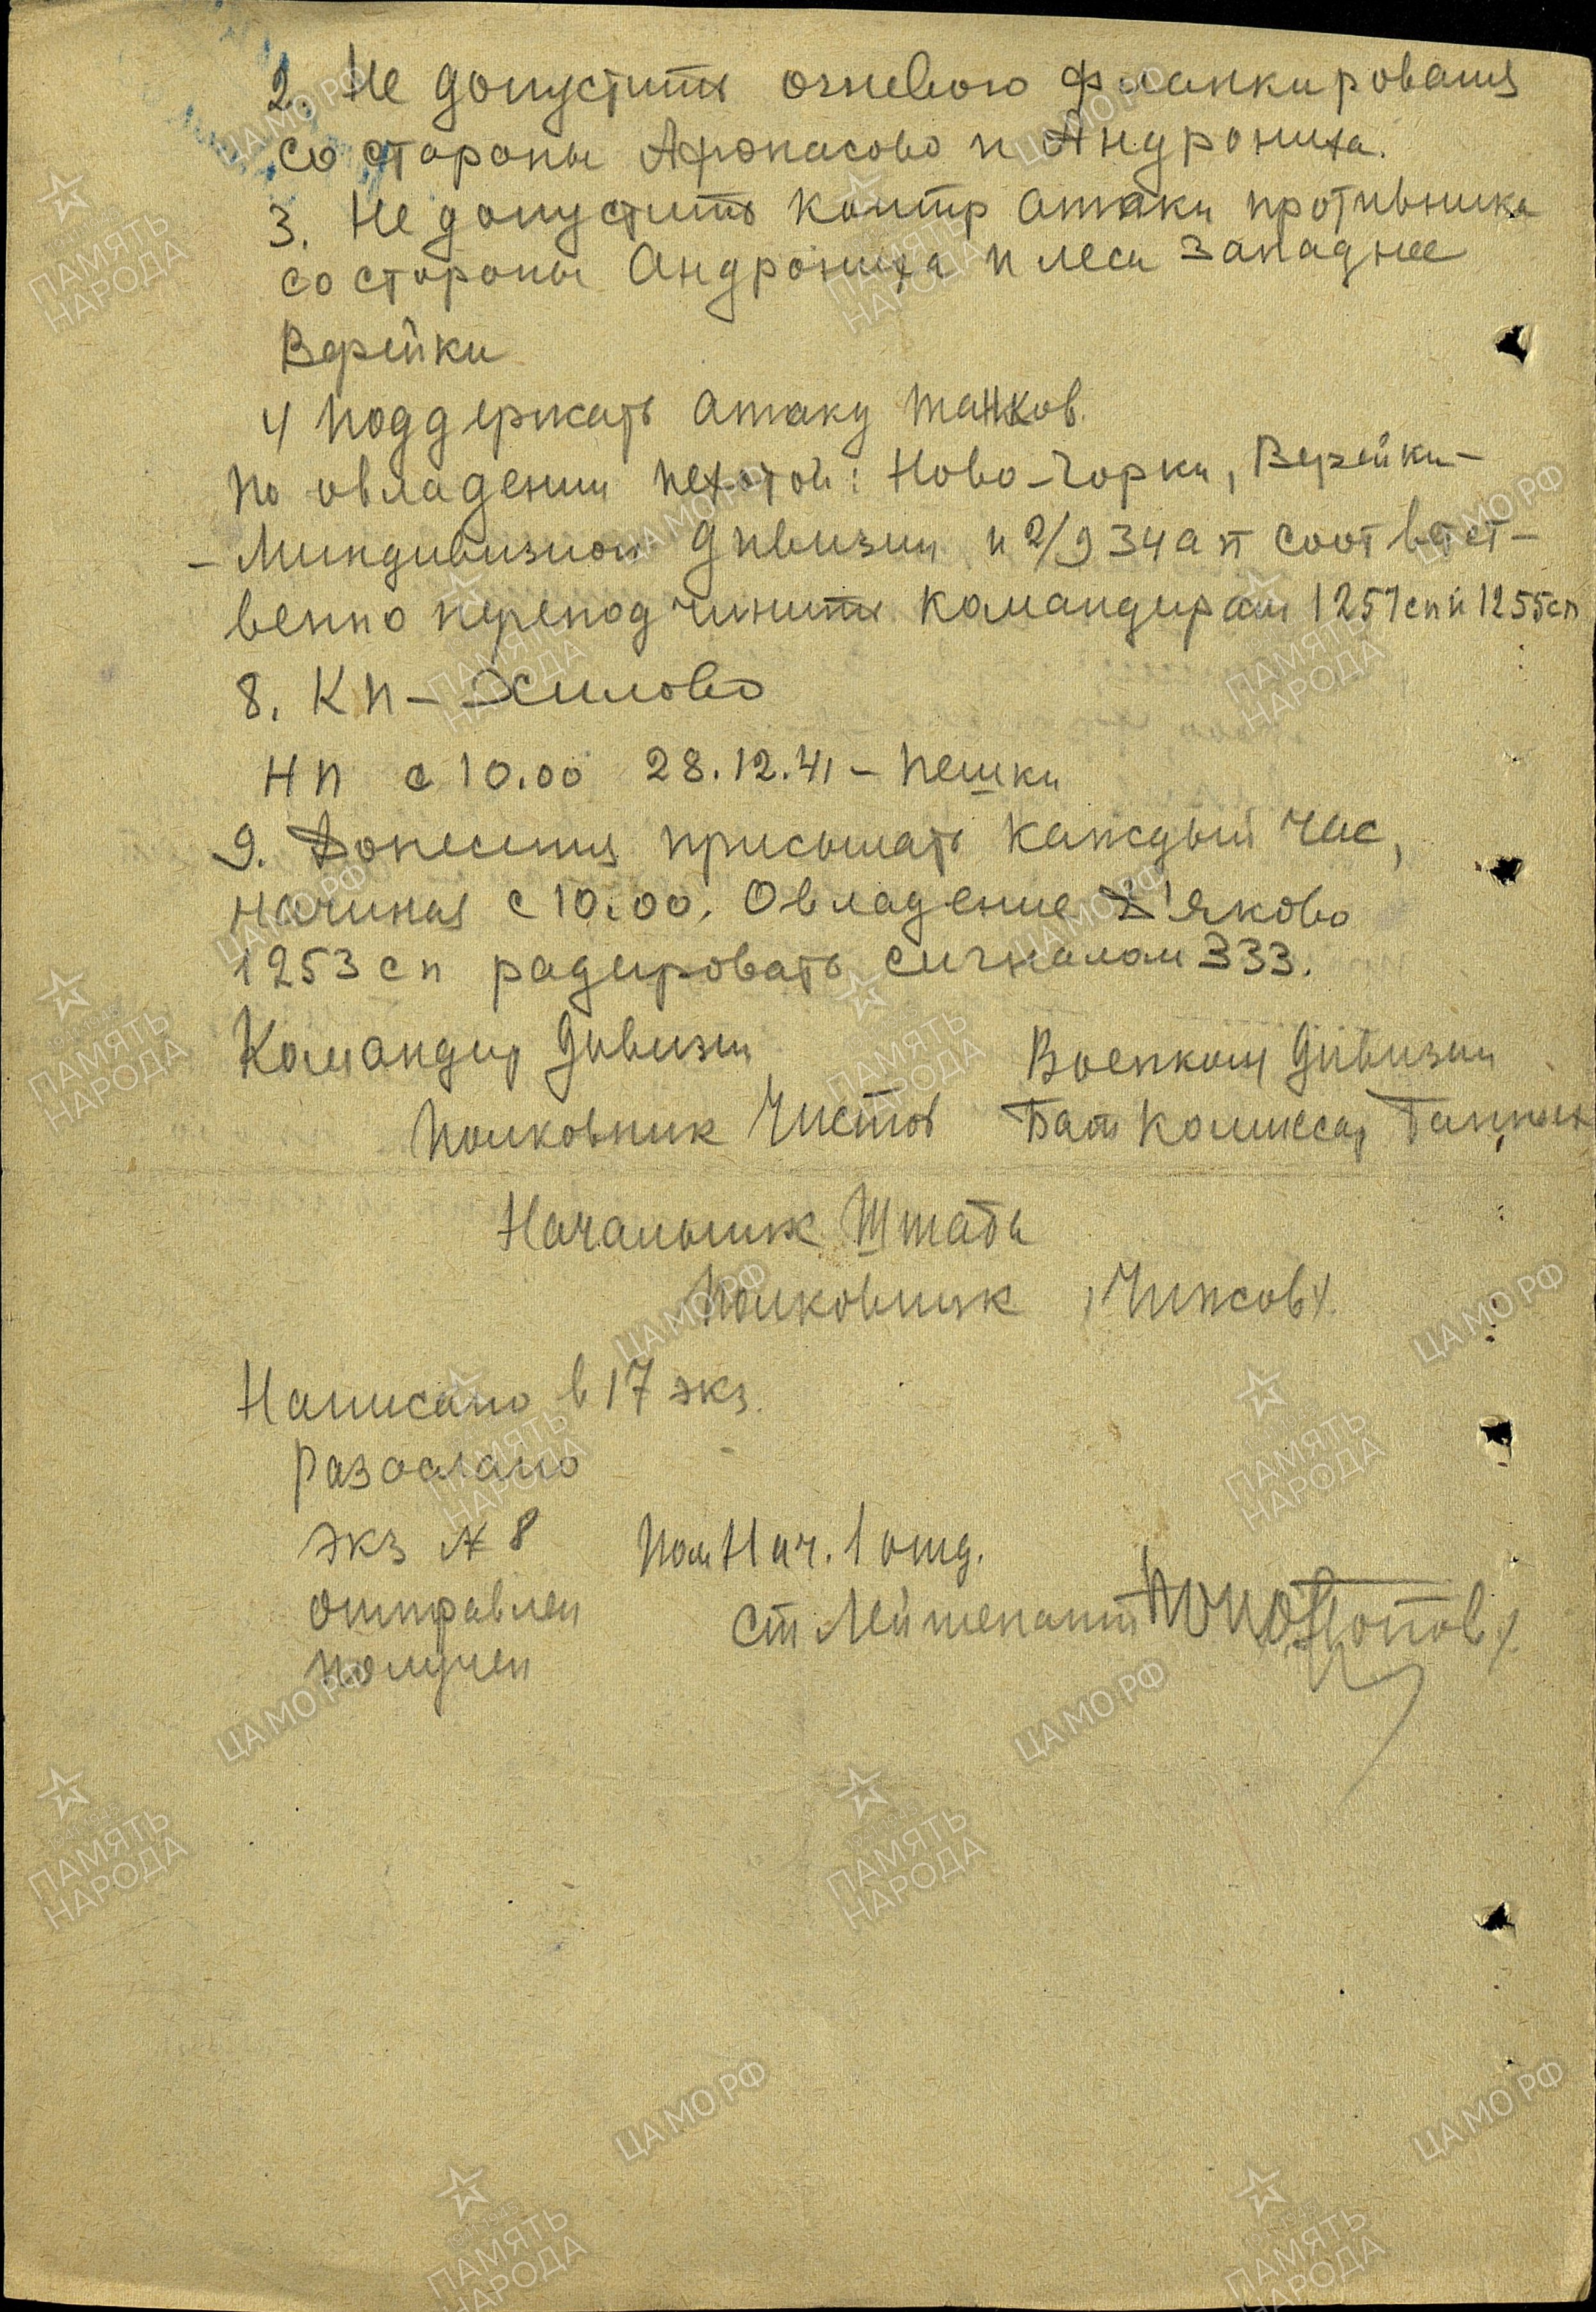 2. Не допустить огневого фланкирования
со стороны Афонасово и Андрониха.
3. Не допустить контр атаки противника
со стороны Андрониха и леса западнее
Верейки
4 Поддержать атаку танков.
По овладении пехотой: Ново-Горки, Верейки-
- Миндивизион дивизии и 2/934 ап соответст-
венно переподчинить командирам 1257сп и 1255сп
8. КП - Осилово
НП с 10.00 28.12.41 - Пешки
9. Донесения присылать каждый час,
начиная с 10.00. Овладение Д'яково
1253 сп радировать сигналом 333.
Командир дивизии Военком дивизии
Полковник Чистов Бат комиссар
Начальник Штаба
Полковник /Чижов/.
Написано в 17 экз.
Разослано
экз № 8 Пом Нач. 1 отд.
отправлен ст Лейтенант
получен
ЦАМО РФ
ПАМЯТЬ НАРОДА